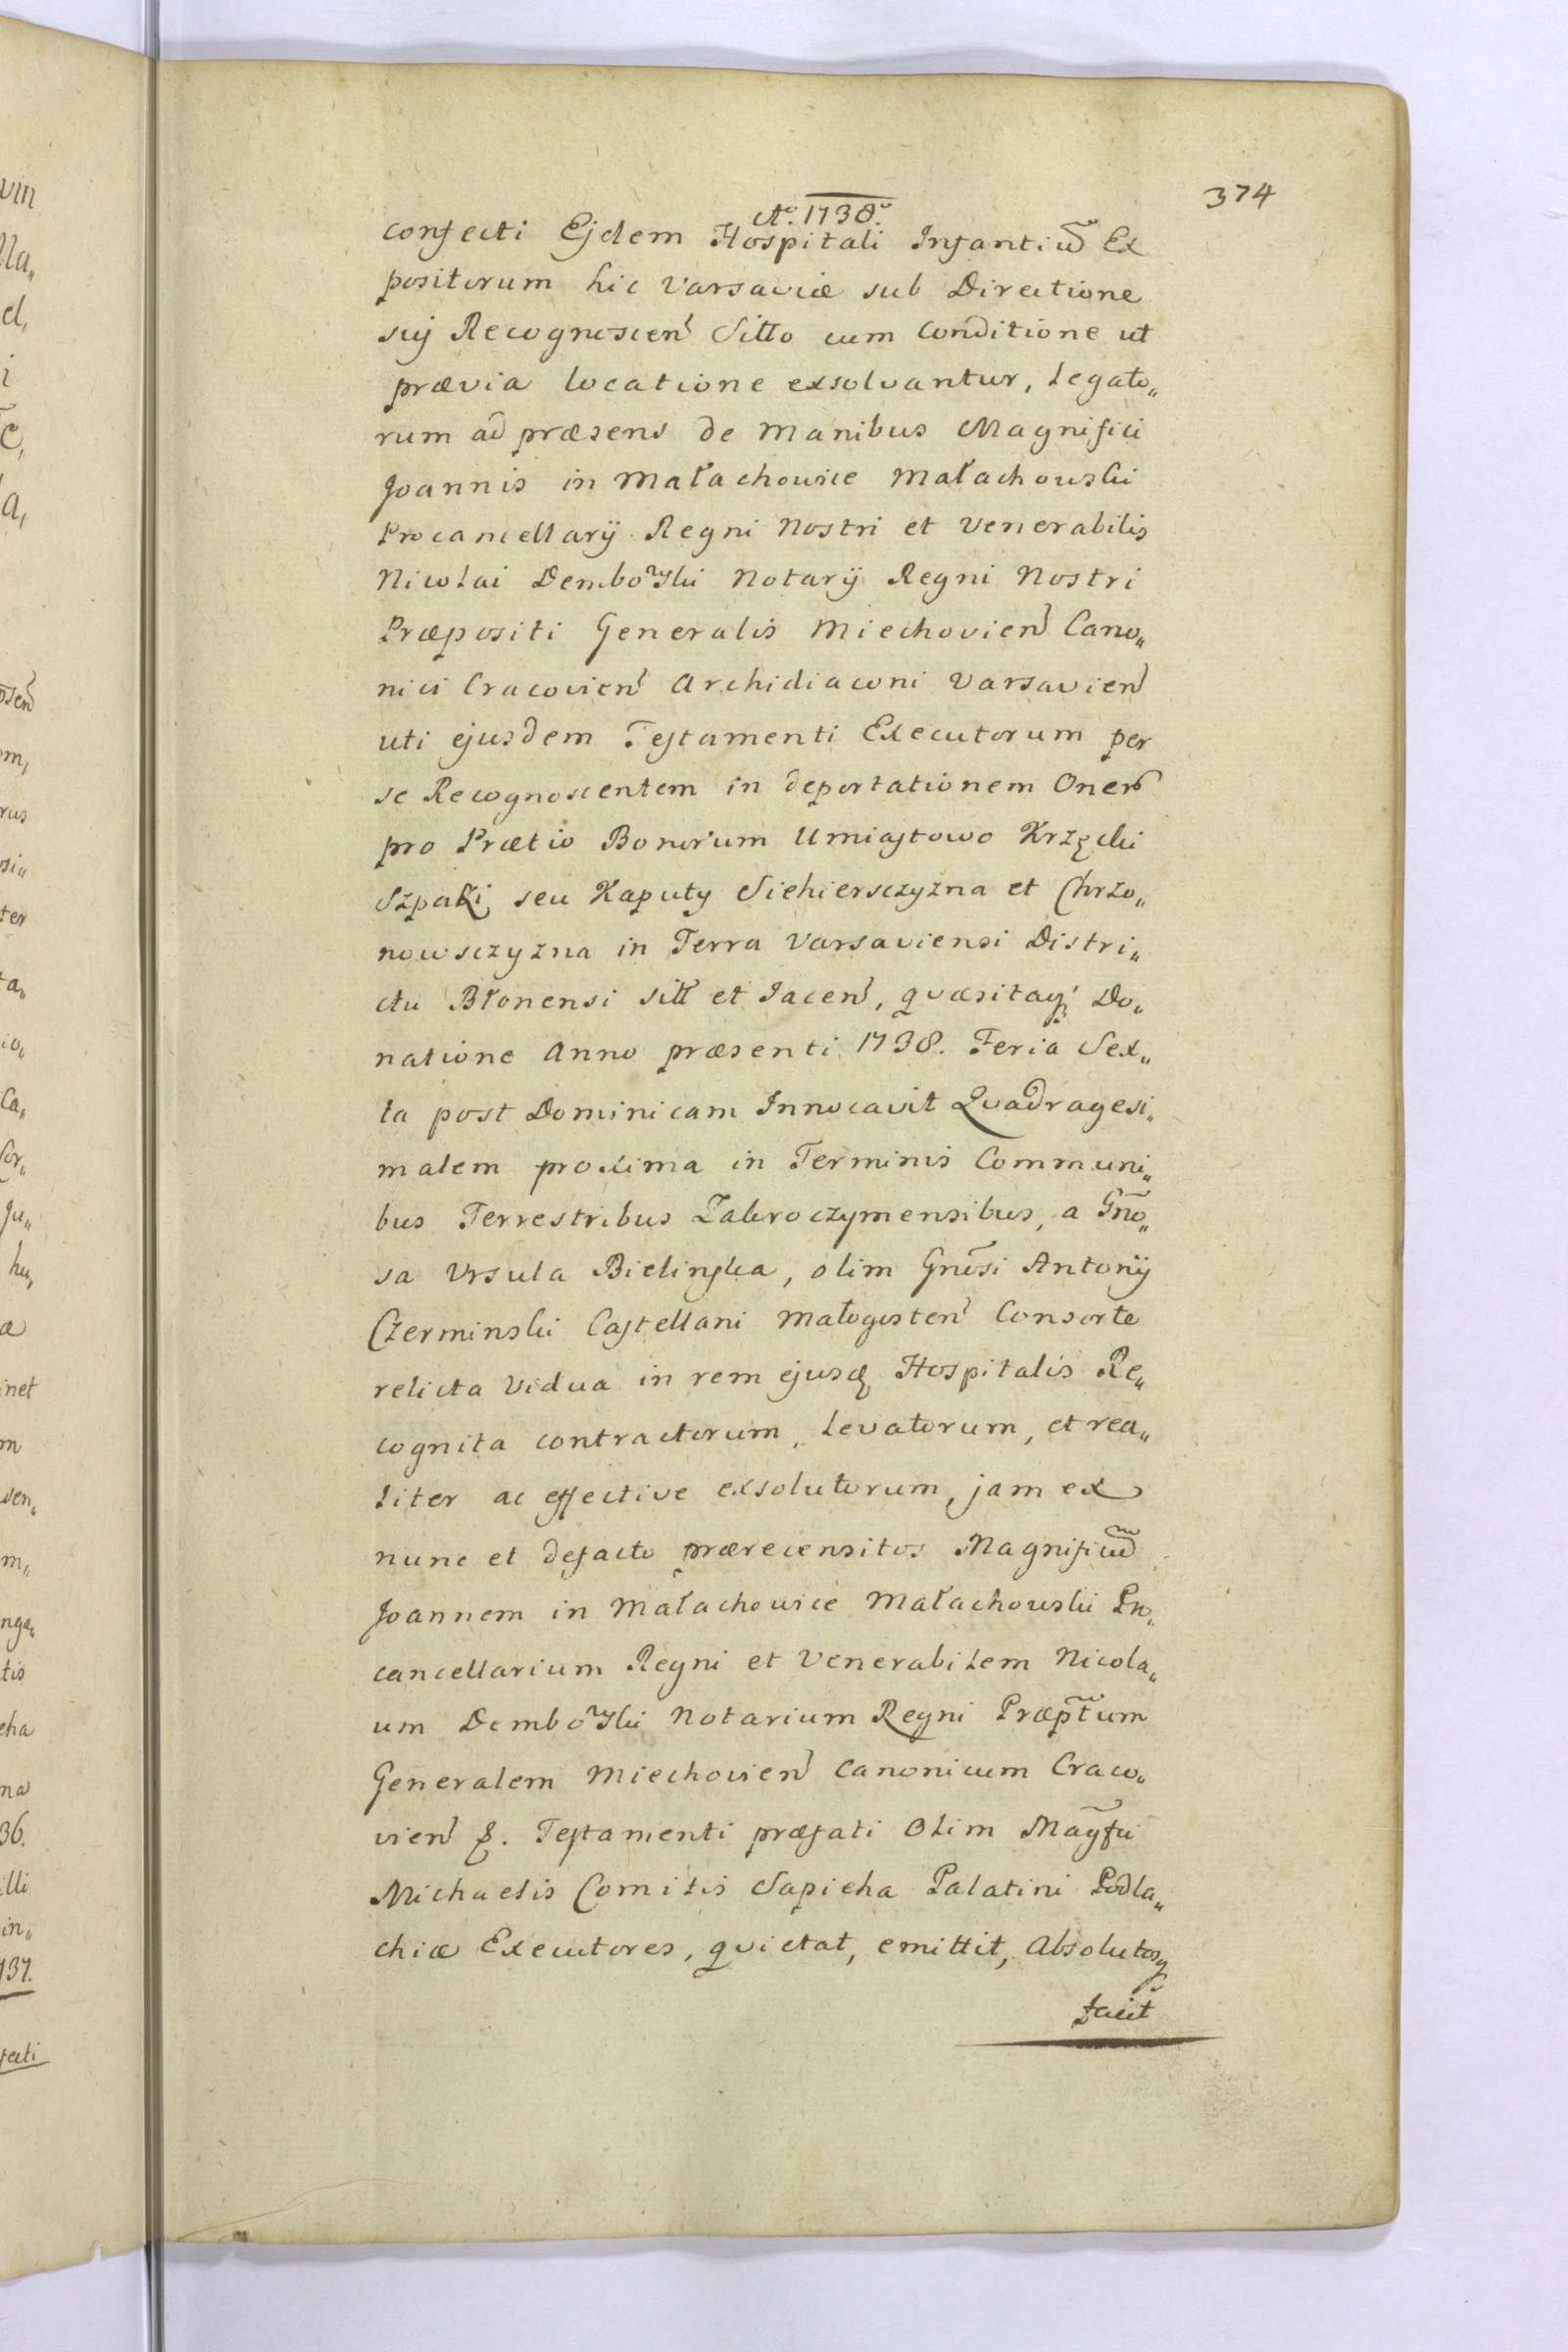 374
Aº. 1738º.
confecti Ejdem Hospitali Infantiũ Ex
positorum hic Varsaviæ sub Directione
sui Recognoscen̄ Sitto cum Conditione ut
prævia locatione exsolvantur, Legato„
rum ad præsens de Manibus Magnifici
Joannis in Małachowice Małachowski
Procancellarij Regni Nostri et Venerabilis
Nicolai Dembowski Notarij Regni Nostri
Præpositi Generalis Miechovien̄ Cano„
nici Cracovien̄ Archidiaconi Varsavien̄
uti ejusdem Testamenti Executorum per
se Recognoscentem in deportationem Oner̃
pro Prætio Bonorum Umiastowo Krzęcki
Szpaki seu Kaputy Siehiersczyzna et Chrzo„
nowsczyzna in Terra Varsaviensi Distri„
ctu Błonensi sitt et Jacen̄, quæsitaq; Do„
natione Anno præsenti 1738. Feria Sex„
ta post Dominicam Innocavit Quadragesi„
malem proxima in Terminis Communi„
bus Terrestribus Zakroczymensibus, a Gño„
sa Ursula Bielinska, olim Gnõsi Antonij
Czerminski Castellani Małogosten̄ Consorte
relicta Vidua in rem ejusd Hospitalis Re„
cognita contractorum, Levatorum, et rea„
liter ac effective exsolutorum, jam ex
nunc et defacto prærecensitos Magnificũ
Joannem in Małachowice Małachowski Pro„
cancellarium Regni et Venerabilem Nicola„
um Dembowski Notarium Regni Præptum
Generalem Miechovien̄ Canonicum Craco„
vien̄ &. Testamenti præfati Olim Magfci
Michaelis Comitis Sapieha Palatini Podla„
chiæ Executores, quietat, emittit, Absolutosq
facit